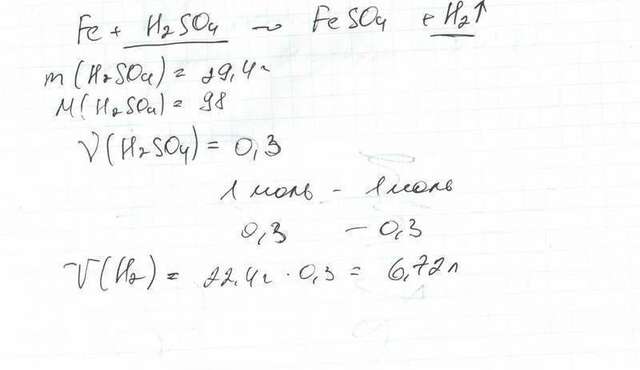 Fe + H₂SO₄ → FeSO₄ + H₂↑
m(H₂SO₄) = 29,4г
M(H₂SO₄) = 98
ν(H₂SO₄) = 0,3
1 моль - 1 моль
0,3 - 0,3
V(H₂) = 22,4г · 0,3 = 6,72л